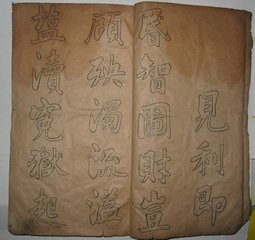 見利即
昏智圖財豈
顧殃濁流溢
鹽瀆寃獄起